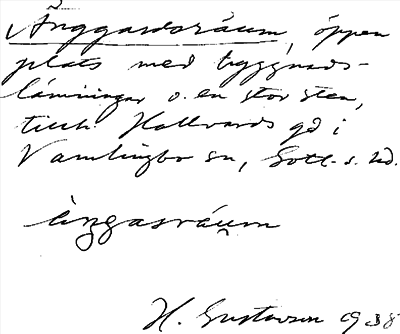 Änggardsräum, öppen
plats med byggnads-
lämningar o. en stor sten,
tillh. Hallvards gd i
Vamlingbo sn, Gotl. s. hd.
ängasräum
H. Gustavson 1938